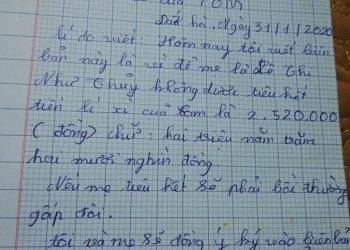 của TOM
Bắt hà, Ngày 31/1/2020
Lí do viết: Hôm nay tôi viết biên
bản này là vì để mẹ là Lê Thị
Như Thủy không được tiêu hết
tiền lì xì của tom là 2.520.000
(đồng) chữ: hai triệu năm trăm
hai mươi nghìn đồng.
Nếu mẹ tiêu hết sẽ phải bồi thường
gấp đôi.
tôi và mẹ sẽ đồng ý ký vào biên bản